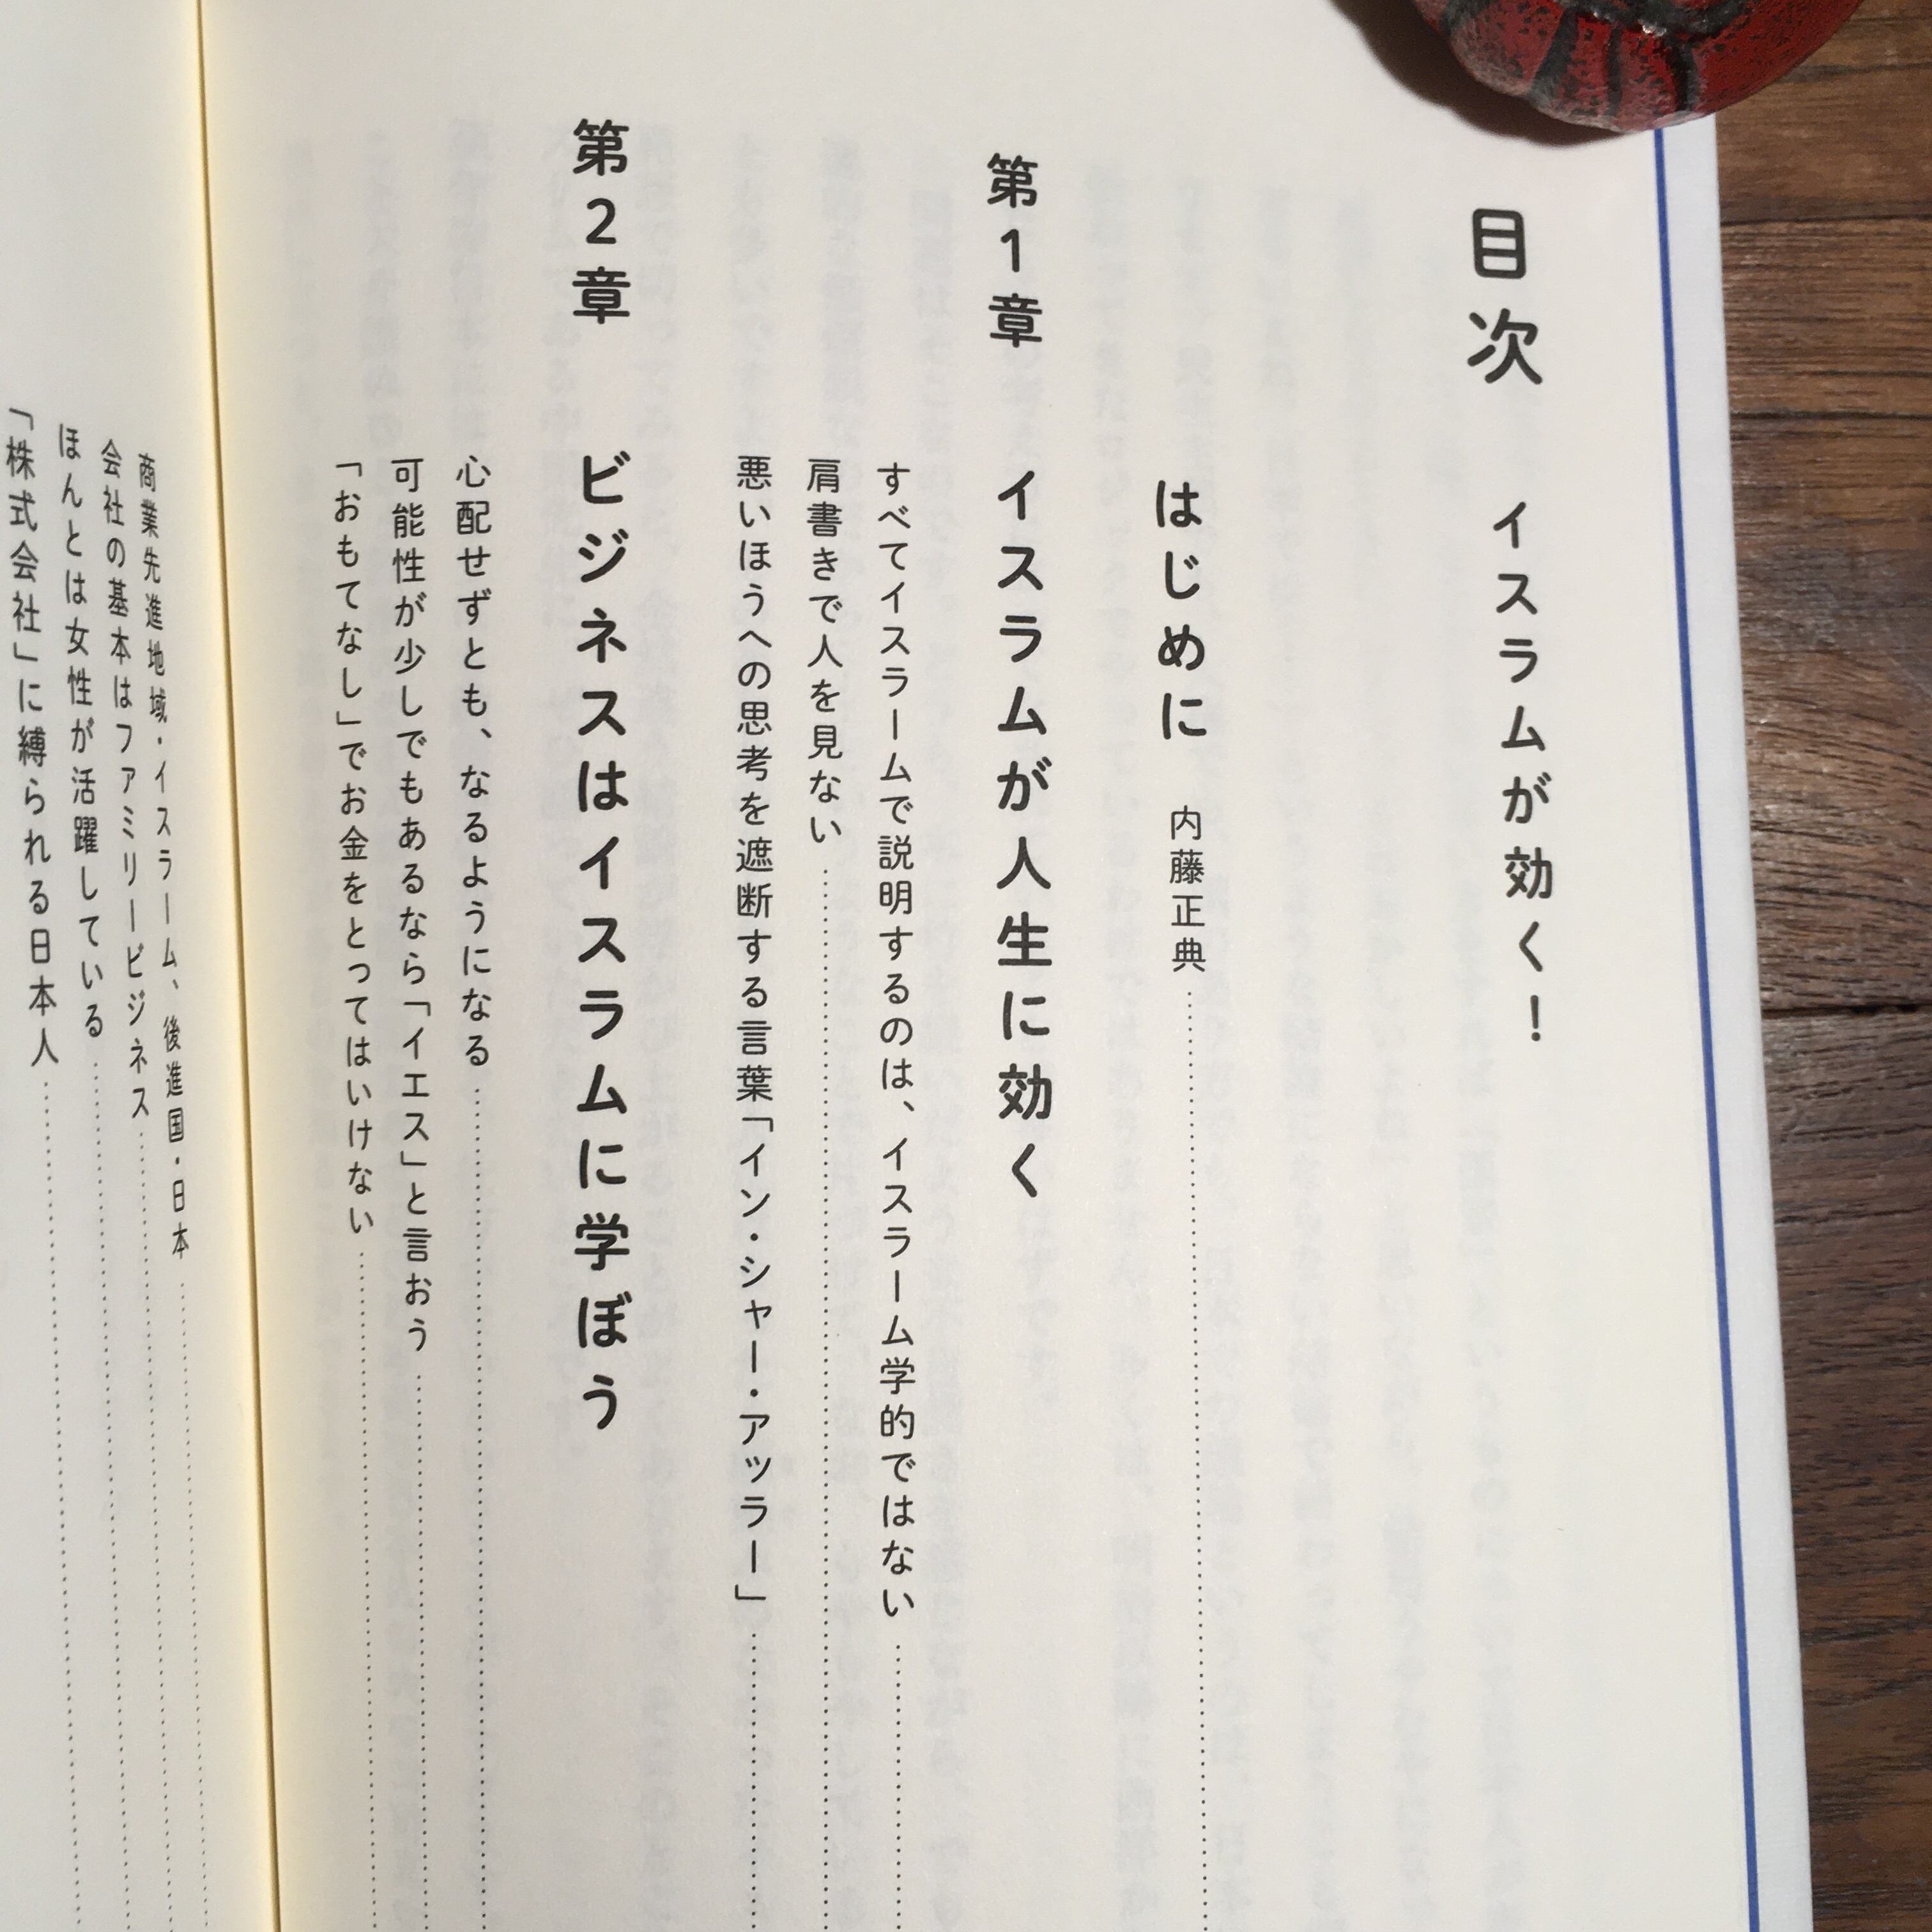 目次 イスラムが効く!
はじめに 内藤正典
第1章 イスラムが人生に効く
すべてイスラームで説明するのは、イスラーム学的ではない
肩書きで人を見ない
悪いほうへの思考を遮断する言葉「イン・シャー・アッラー」
第2章 ビジネスはイスラムに学ぼう
心配せずとも、なるようになる
可能性が少しでもあるなら「イエス」と言おう
「おもてなし」でお金をとってはいけない
商業先進地域・イスラーム、後進国・日本
会社の基本はファミリービジネス
ほんとは女性が活躍している
「株式会社」に縛られる日本人